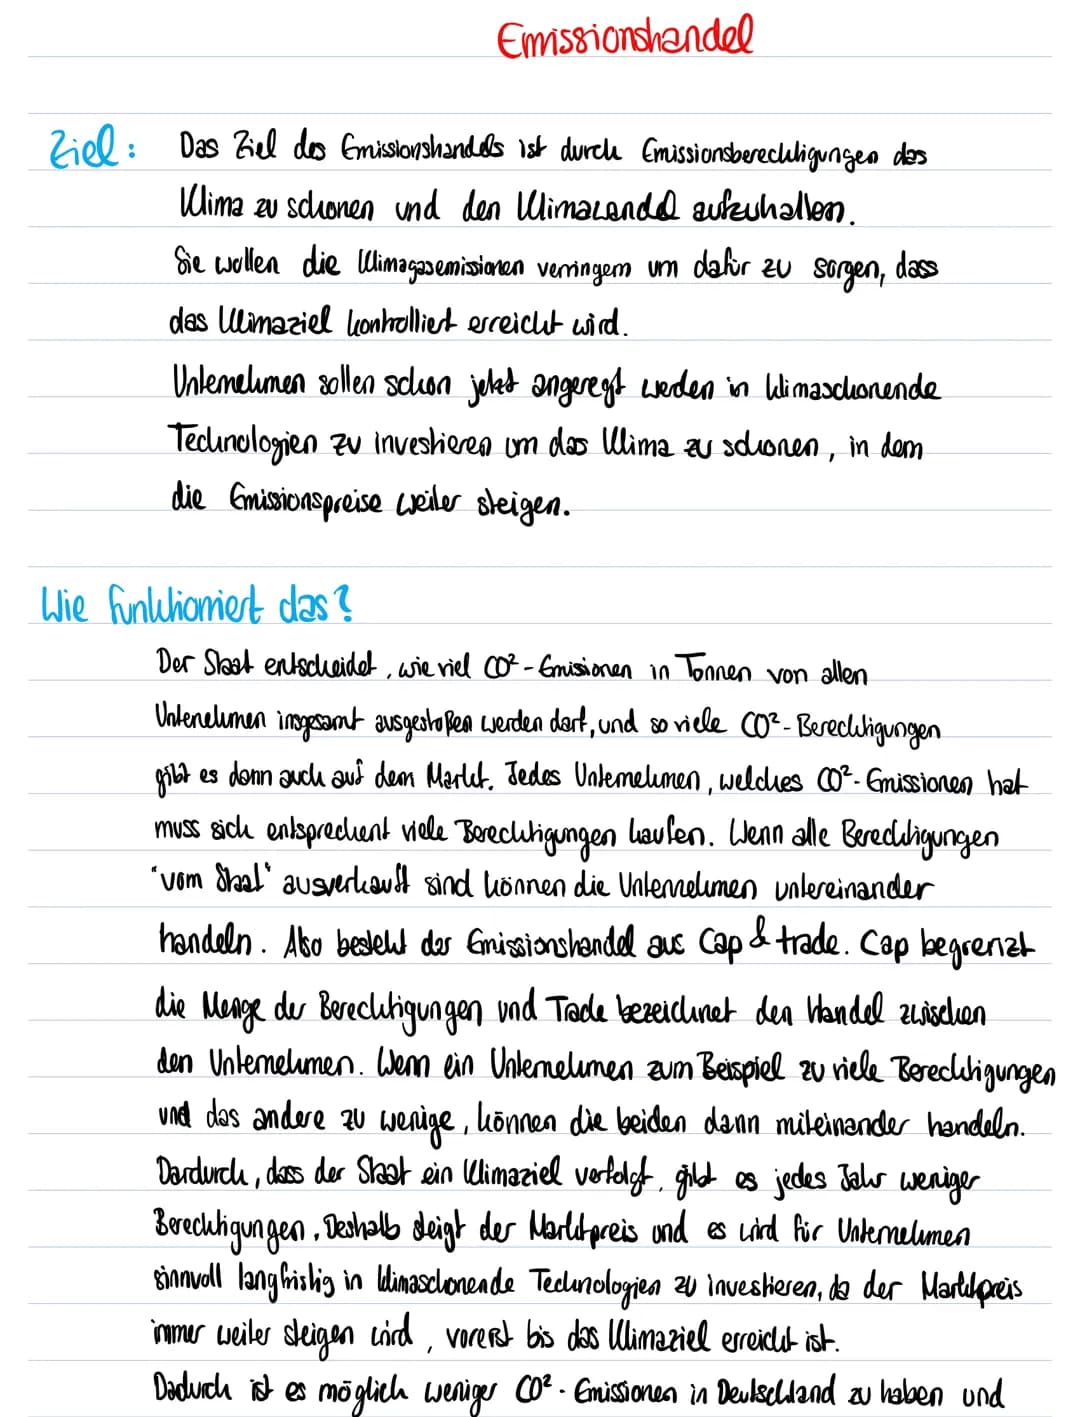 Emissionshandel
Ziel: Das Ziel des Emissionshandels ist durch Emissionsberechtigungen das
Klima zu schonen und den Klimawandel aufzuhalten.
Sie wollen die Klimagasemissionen verringern um dafür zu sorgen, dass
das Klimaziel kontrolliert erreicht wird.
Unternehmen sollen schon jetzt angeregt werden in klimaschonende
Technologien zu investieren um das Klima zu schonen, in dem
die Emissionspreise weiter steigen.
Wie funktioniert das?
Der Staat entscheidet, wie viel CO²-Emisionen in Tonnen von allen
Unternehmen insgesamt ausgestoßen werden darf, und so viele CO²-Berechtigungen
gibt es dann auch auf dem Markt. Jedes Unternehmen, welches CO²-Emissionen hat
muss sich entsprechent viele Berechtigungen kaufen. Wenn alle Berechtigungen
"vom Staat" ausverkauft sind können die Unternehmen untereinander
handeln. Also besteht der Emissionshandel aus Cap & trade. Cap begrenzt
die Menge der Berechtigungen und Trade bezeichnet den Handel zwischen
den Unternehmen. Wenn ein Unternehmen zum Beispiel zu viele Berechtigungen
und das andere zu wenige, können die beiden dann miteinander handeln.
Dardurch, dass der Staat ein Klimaziel verfolgt, gibt es jedes Jahr weniger
Berechtigungen. Deshalb steigt der Marktpreis und es wird für Unternehmen
sinnvoll langfristig in klimaschonende Technologien zu investieren, da der Marktpreis
immer weiter steigen wird, vorerst bis das Klimaziel erreicht ist.
Dadurch ist es möglich weniger CO²-Emissionen in Deutschland zu haben und